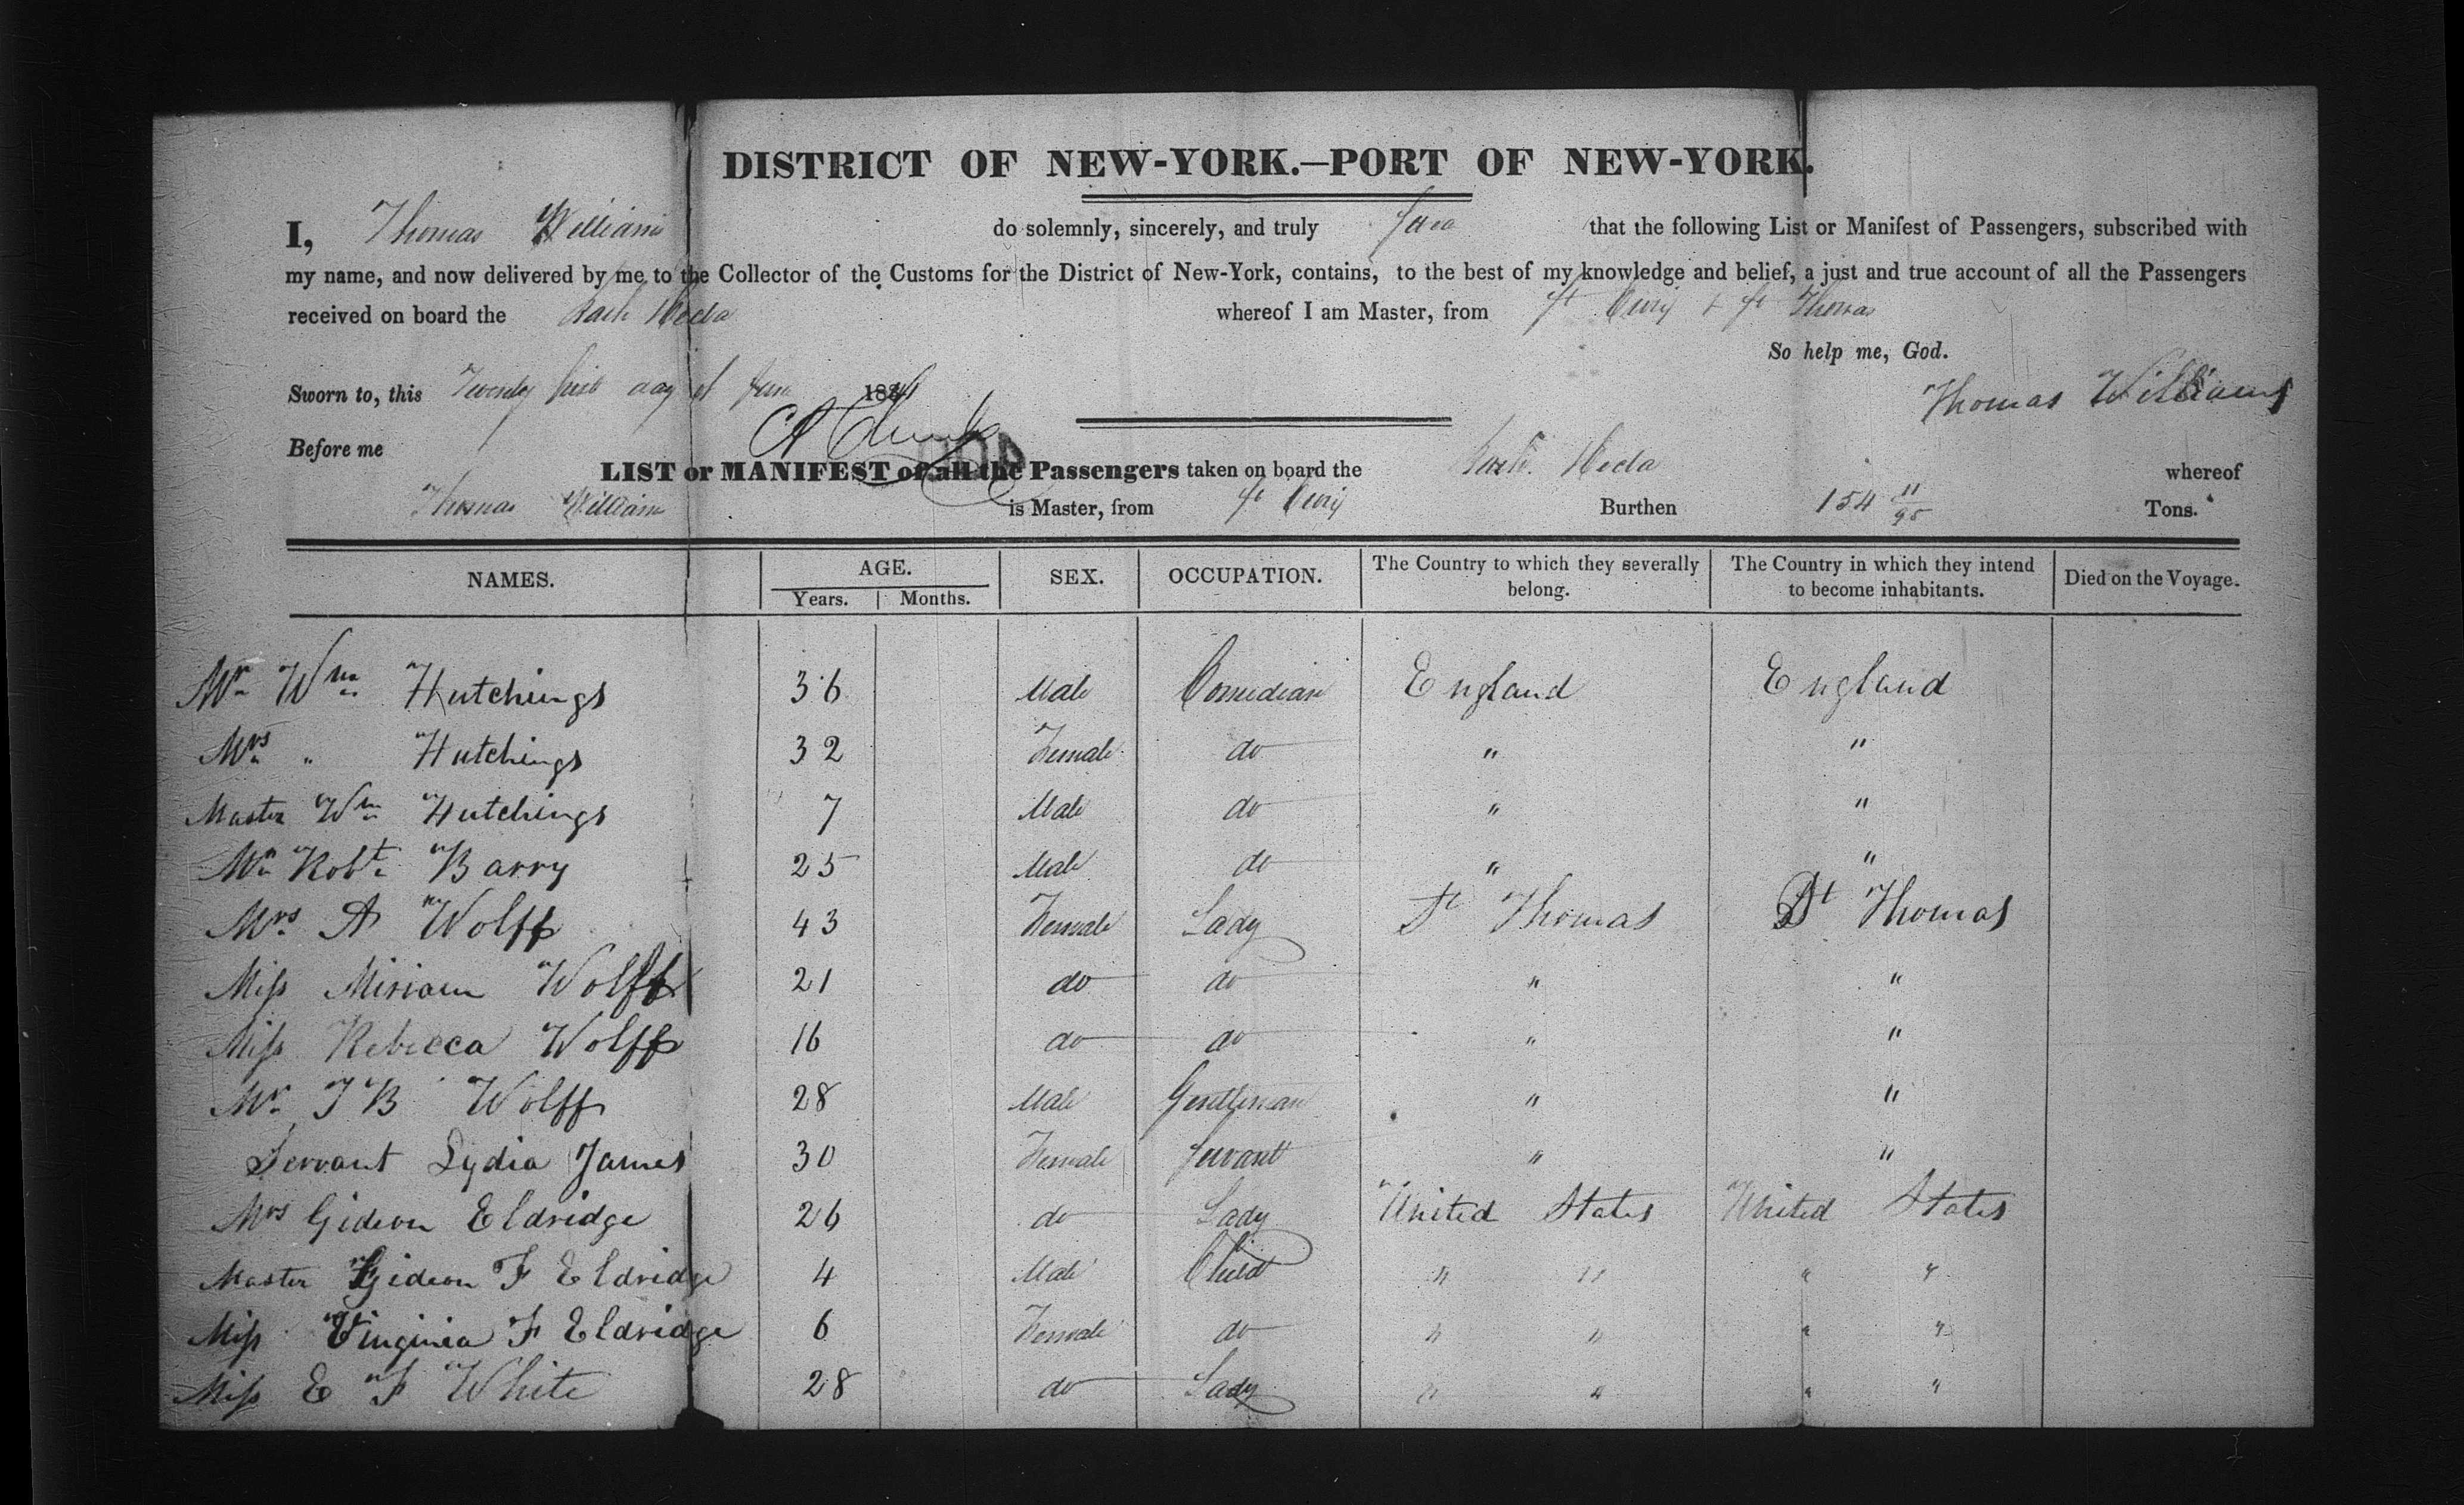 DISTRICT OF NEW-YORK.—PORT OF NEW-YORK.
I, Thomas Williams do solemnly, sincerely, and truly that the following List or Manifest of Passengers, subscribed with
my name, and now delivered by me to the Collector of the Customs for the District of New-York, contains, to the best of my knowledge and belief, a just and true account of all the Passengers
received on board the whereof I am Master, from St Croix & St Thomas
So help me, God.
Sworn to, this Twenty first day of June 184
Thomas Williams
Before me
LIST or MANIFEST of all the Passengers taken on board the whereof
Thomas Williams is Master, from St Croix Burthen 154 11/95 Tons.
NAMES. AGE. Years. Months. SEX. OCCUPATION. The Country to which they severally belong. The Country in which they intend to become inhabitants. Died on the Voyage.
Mr Wm Hutchings 36 Male Comedian England England
Mrs " Hutchings 32 Female do " "
Master Wm Hutchings 7 Male do " "
Mr Robt Barry 25 Male do " "
Mrs A Wolff 43 Female Lady St Thomas St Thomas
Miss Miriam Wolff 21 do do " "
Miss Rebecca Wolff 16 do do " "
Mr J B Wolff 28 Male Gentleman " "
Servant Lydia James 30 Female Servant " "
Mrs Gideon Eldridge 26 do Lady United States United States
Master Gideon F Eldridge 4 Male Child " " " "
Miss Virginia F Eldridge 6 Female do " " " "
Miss E F White 28 do Lady " " " "